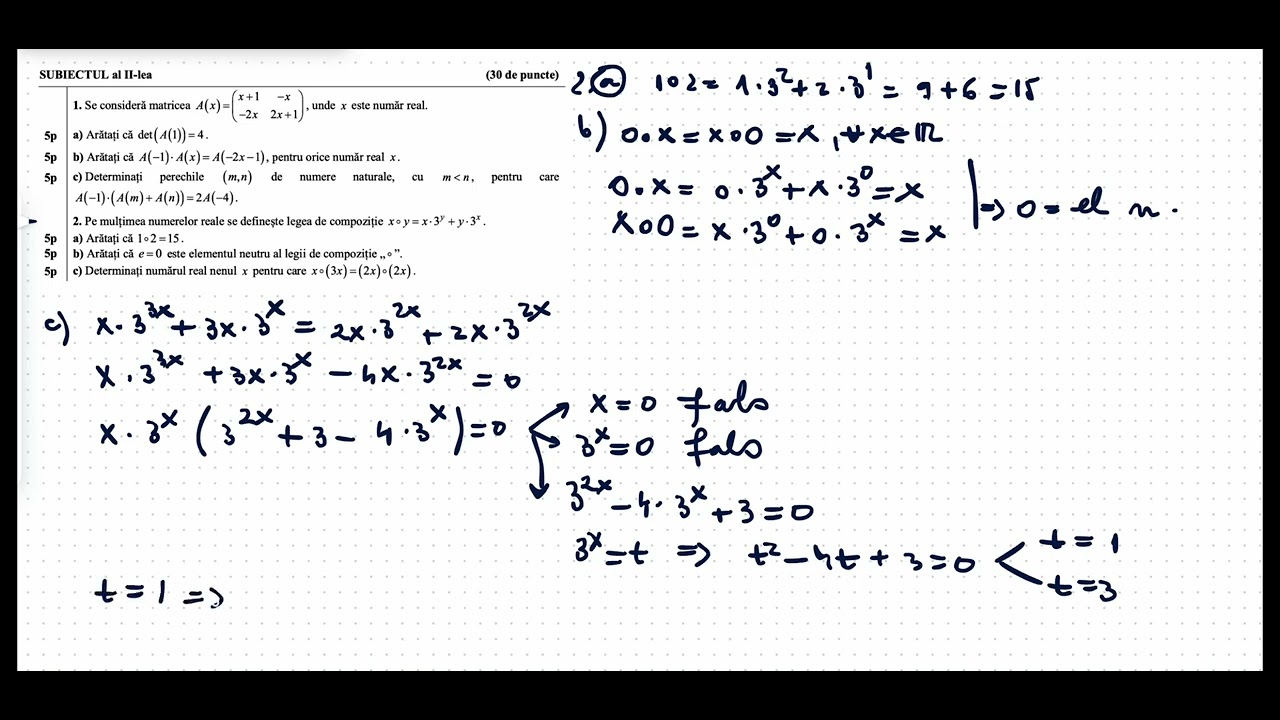 SUBIECTUL al II-lea (30 de puncte)
1. Se consideră matricea A(x) = ( x+1 -x ; -2x 2x+1 ), unde x este număr real.
5p a) Arătați că det(A(1)) = 4.
5p b) Arătați că A(-1)·A(x) = A(-2x-1), pentru orice număr real x.
5p c) Determinați perechile (m,n) de numere naturale, cu m < n, pentru care
A(-1)·(A(m)+A(n)) = 2A(-4).
2. Pe mulțimea numerelor reale se definește legea de compoziție x∘y = x·3^y + y·3^x.
5p a) Arătați că 1∘2 = 15.
5p b) Arătați că e = 0 este elementul neutru al legii de compoziție „∘”.
5p c) Determinați numărul real nenul x pentru care x∘(3x) = (2x)∘(2x).
2. a) 1∘2 = 1·3^2 + 2·3^1 = 9+6 = 15
b) 0∘x = x∘0 = x, ∀x∈ℝ
0∘x = 0·3^x + x·3^0 = x
x∘0 = x·3^0 + 0·3^x = x
⇒ 0 = el n.
c) x·3^{3x} + 3x·3^x = 2x·3^{2x} + 2x·3^{2x}
x·3^{3x} + 3x·3^x - 4x·3^{2x} = 0
x·3^x (3^{2x} + 3 - 4·3^x) = 0
x = 0 fals
3^x = 0 fals
3^{2x} - 4·3^x + 3 = 0
3^x = t ⇒ t^2 - 4t + 3 = 0
t = 1
t = 3
t = 1 ⇒